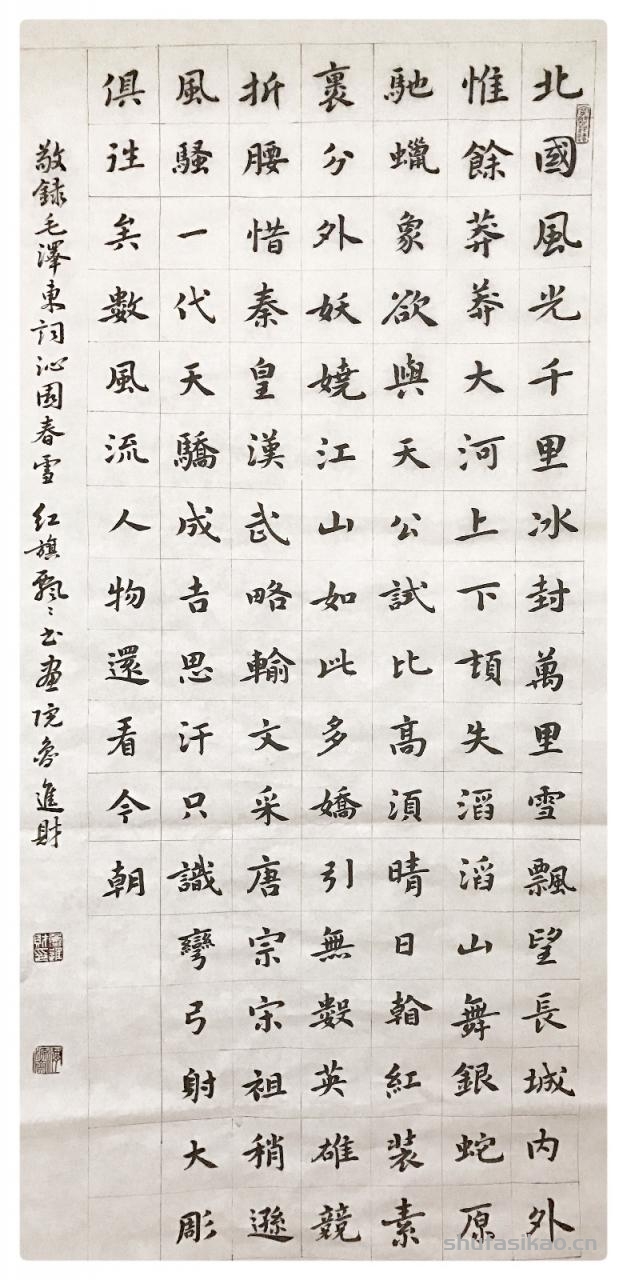 北國風光千里冰封萬里雪飄望長城内外
惟餘莽莽大河上下頓失滔滔山舞銀蛇原
馳蠟象欲與天公試比高須晴日看紅裝素
裹分外妖嬈江山如此多嬌引無數英雄競
折腰惜秦皇漢武略輸文采唐宗宋祖稍遜
風騷一代天驕成吉思汗只識彎弓射大彫
俱往矣數風流人物還看今朝
敬録毛澤東詞沁園春雪 红旗飄〻书畫院魯進財
shufasikao.cn